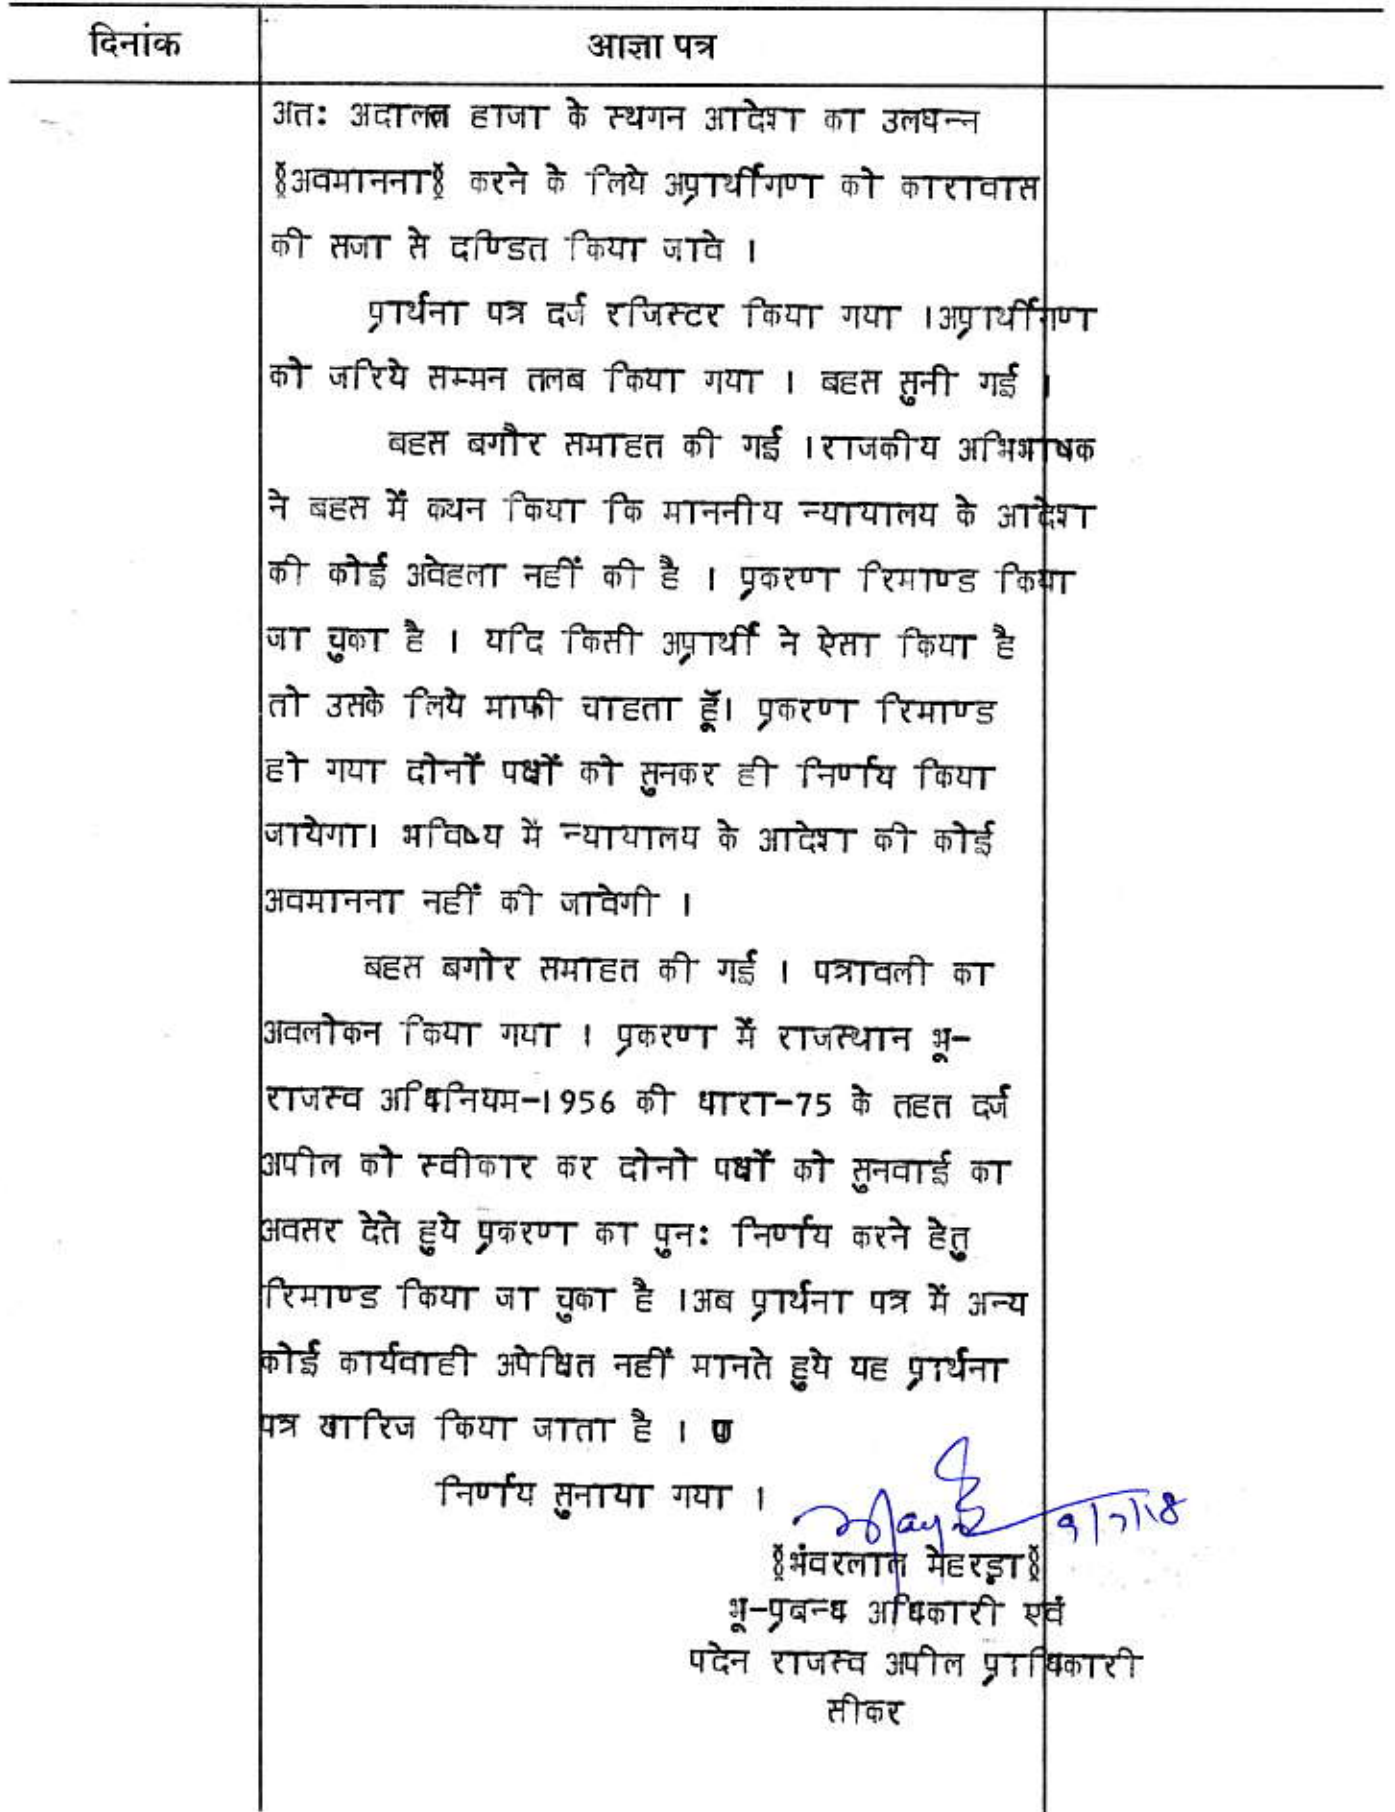 दिनांक आज्ञा पत्र
अत: अदालत हाजा के स्थगन आदेश का उलघन्न
﴾अवमानना﴿ करने के लिये अप्रार्थीगण को कारावास
की सजा से दण्डित किया जावे ।
प्रार्थना पत्र दर्ज रजिस्टर किया गया ।अप्रार्थीगण
को जरिये सम्मन तलब किया गया । बहस सुनी गई ।
बहस बगौर समाहत की गई ।राजकीय अभिभाषक
ने बहस में कथन किया कि माननीय न्यायालय के आदेश
की कोई अवेहला नहीं की है । प्रकरण रिमाण्ड किया
जा चुका है । यदि किसी अप्रार्थी ने ऐसा किया है
तो उसके लिये माफी चाहता हूँ। प्रकरण रिमाण्ड
हो गया दोनों पक्षों को सुनकर ही निर्णय किया
जायेगा। भविष्य में न्यायालय के आदेश की कोई
अवमानना नहीं की जावेगी ।
बहस बगोर समाहत की गई । पत्रावली का
अवलोकन किया गया । प्रकरण में राजस्थान भू-
राजस्व अधिनियम-1956 की धारा-75 के तहत दर्ज
अपील को स्वीकार कर दोनो पक्षों को सुनवाई का
अवसर देते हुये प्रकरण का पुन: निर्णय करने हेतु
रिमाण्ड किया जा चुका है ।अब प्रार्थना पत्र में अन्य
कोई कार्यवाही अपेक्षित नहीं मानते हुये यह प्रार्थना
पत्र खारिज किया जाता है ।
निर्णय सुनाया गया ।
9/7/18
﴾भंवरलाल मेहरड़ा﴿
भू-प्रबन्ध अधिकारी एवं
पदेन राजस्व अपील प्राधिकारी
सीकर